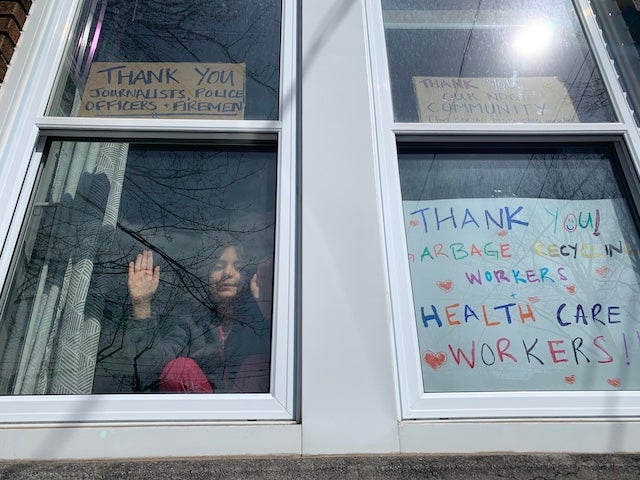 THANK YOU
JOURNALISTS, POLICE
OFFICERS + FIREMEN
THANK YOU
COMMUNITY
THANK YOU!
ARBAGE RECYCLIN
WORKERS
+
HEALTH CARE
WORKERS!!